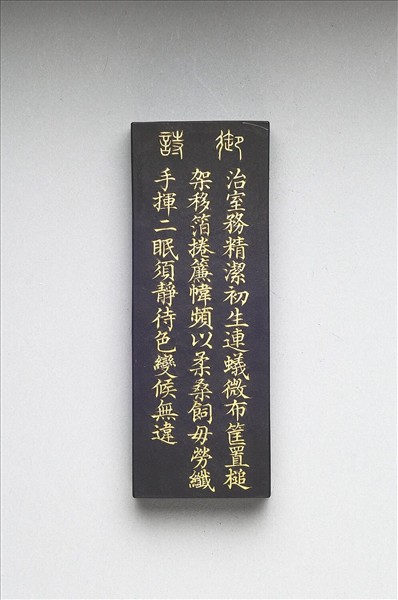 御詩
治室務精潔初生連蟻微布筐置槌
架移箔捲簾幃頻以柔桑飼毋勞纖
手揮二眠須靜待色變候無違